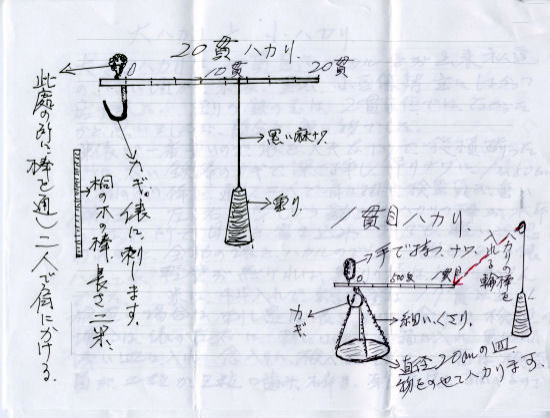 20貫ハカリ.
0
10貫
20貫
此處の所に棒を通し二人で肩にかける.
カギ。俵に刺します.
桐の木の棒.長さ二米.
黒い麻ナワ
重り.
1貫目ハカリ.
手で持つ、ナワ.
0
500匁
1貫目
ハカリの棒を
入れる輪
カギ
細いくさり.
直径20cmの皿.
物をのせてハカリます.